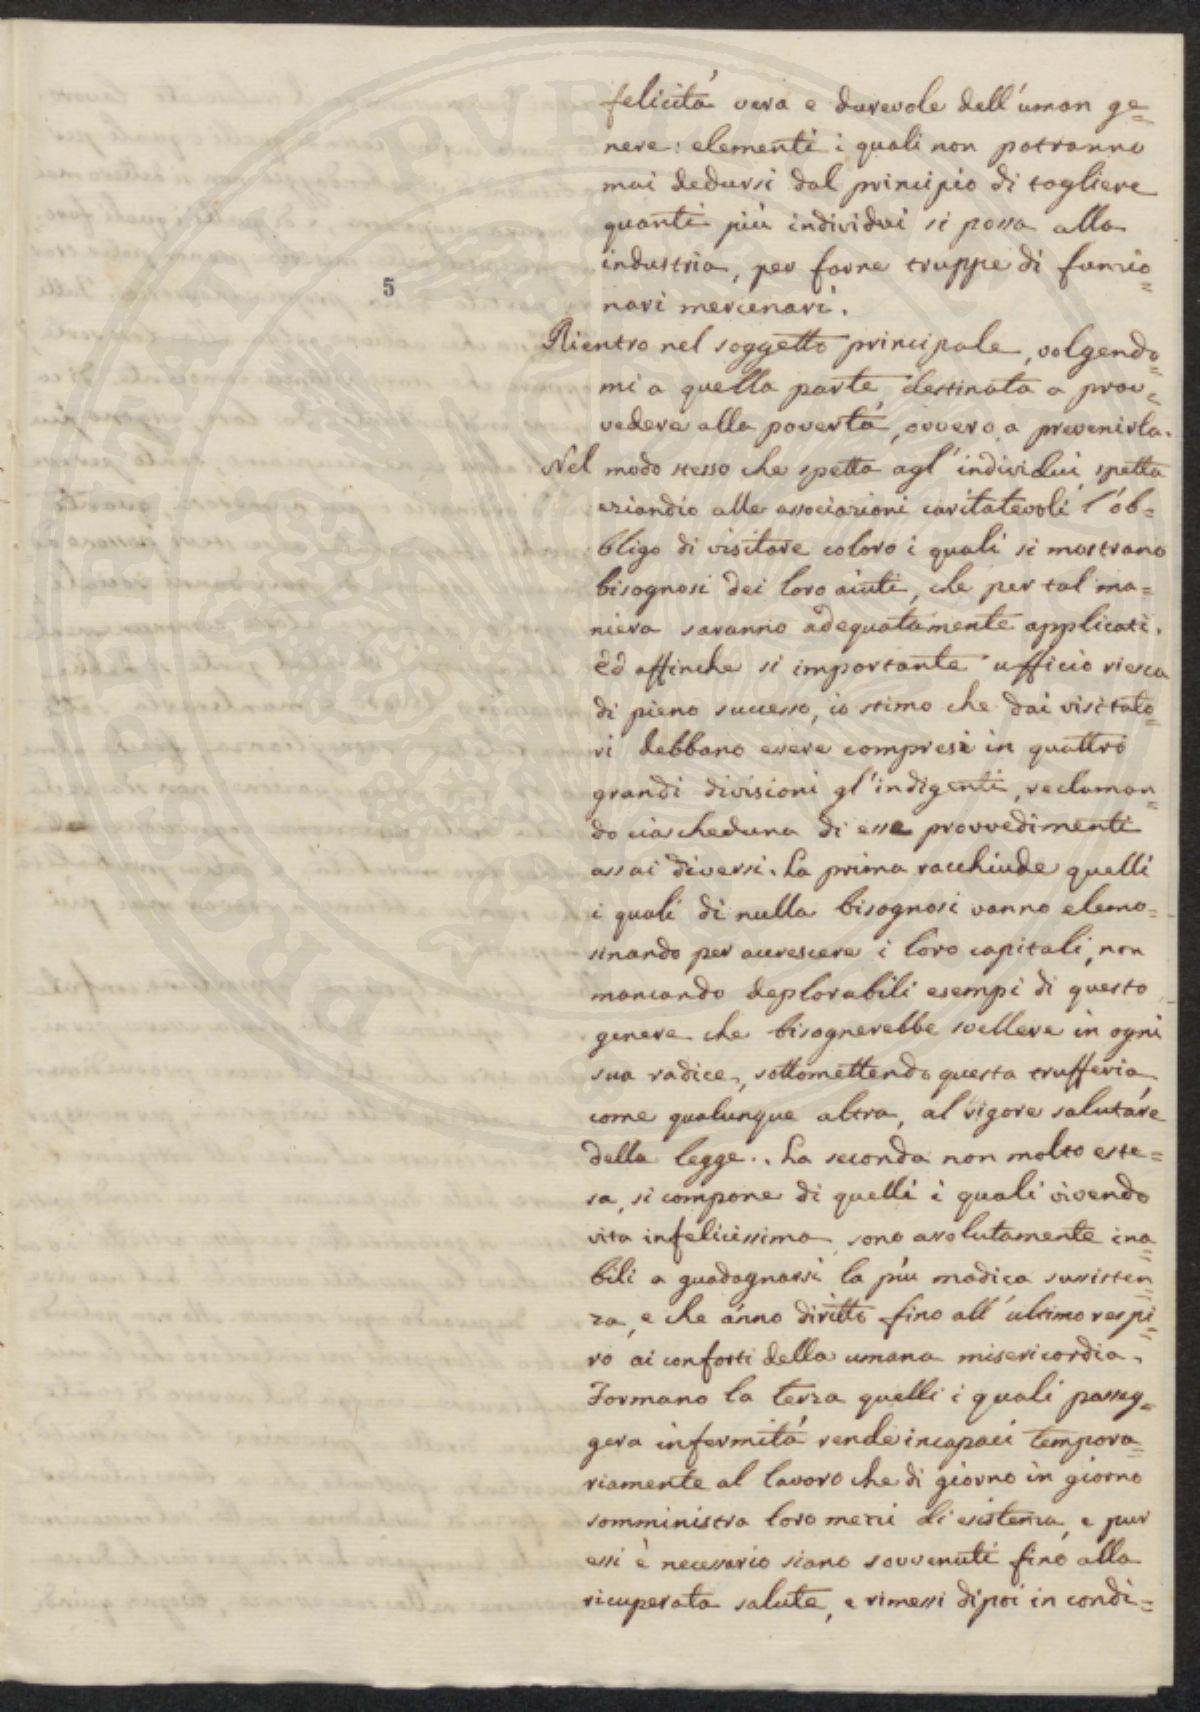 felicitá vera e durevole dell'uman ge=
nere: elementi i quali non potranno
mai dedursi dal principio di togliere
quanti più individui si possa alla
industria, per farne truppe di funzio=
nari mercenari.
5
Rientro nel soggetto principale, volgendo=
mi a quella parte destinata a prov=
vedere alla povertá, ovvero a prevenirla.
Nel modo stesso che spetta agl'individui, spetta
eziandio alle associazioni caritatevoli l'ob=
bligo di visitare coloro i quali si mostrano
bisognosi dei loro aiuti, che per tal ma=
niera saranno adequatamente applicati.
Ed affinche si importante ufficio riesca
di pieno successo, io stimo che dai visitato=
ri debbano essere compresi in quattro
grandi divisioni gl'indigenti, reclaman=
do ciascheduna di esse provvedimenti
assai diversi. La prima racchiude quelli
i quali di nulla bisognosi vanno elemo=
sinando per accrescere i loro capitali, non
mancando deplorabili esempi di questo
genere che bisognerebbe svellere in ogni
sua radice, sottomettendo questa trufferia,
come qualunque altra, al vigore salutare
della legge. La seconda non molto este=
sa, si compone di quelli i quali vivendo
vita infelicissima sono assolutamente ina=
bili a guadagnarsi la più modica sussisten=
za, e che ánno diritto fino all'ultimo respi=
ro ai conforti della umana misericordia.
Formano la terza quelli i quali passeg=
gera infermitá rende incapaci tempora=
riamente al lavoro che di giorno in giorno
somministra loro mezzi di esistenza, e pur
essi è necessario siano sovvenuti fino alla
ricuperata salute, e rimessi dipoi in condi=